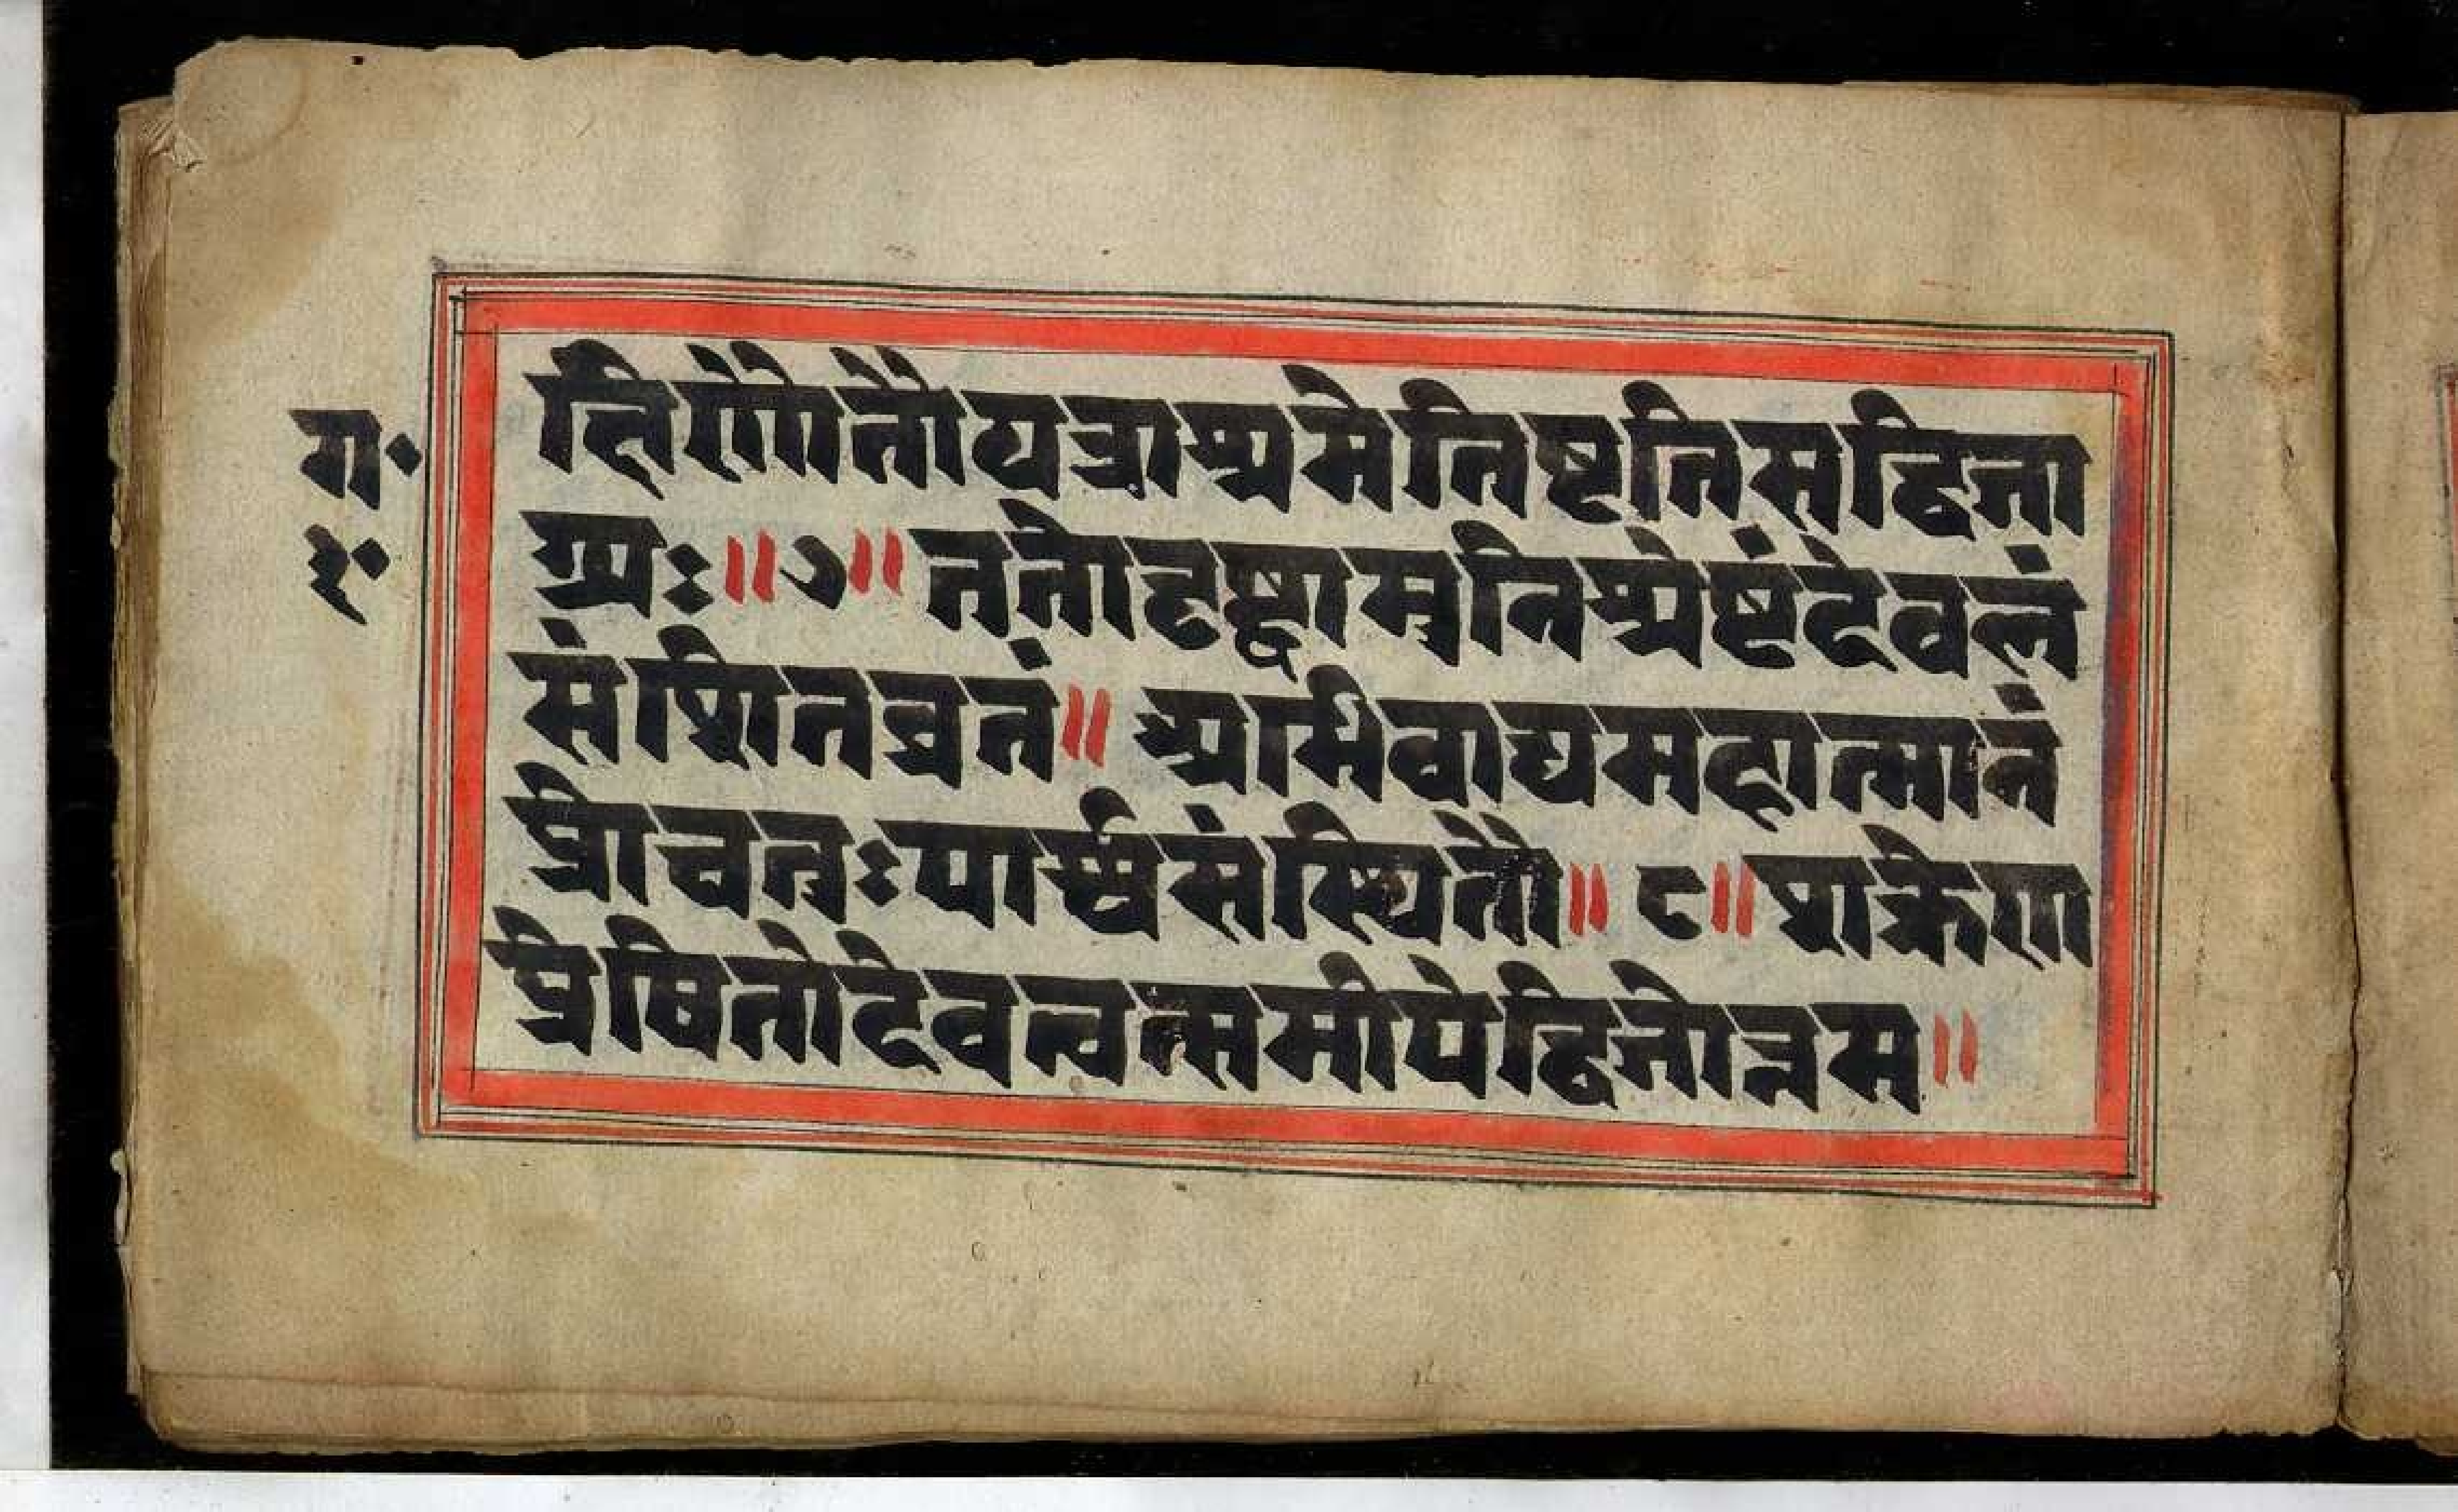 ग॰
र॰
क्षिणौतौयत्राश्रमेतिष्टतिसद्विजा
ग्र्यः ॥ ७ ॥ ततोदृष्ट्वामुनिश्रेष्टंदेवलं
संशितव्रतं ॥ अभिवाद्यमहात्मानं
प्रोचतुःपार्श्वसंस्थितौ ॥ ८ ॥ शक्रेण
प्रेषितौदेवत्वत्समीपेद्विजोत्तम ॥